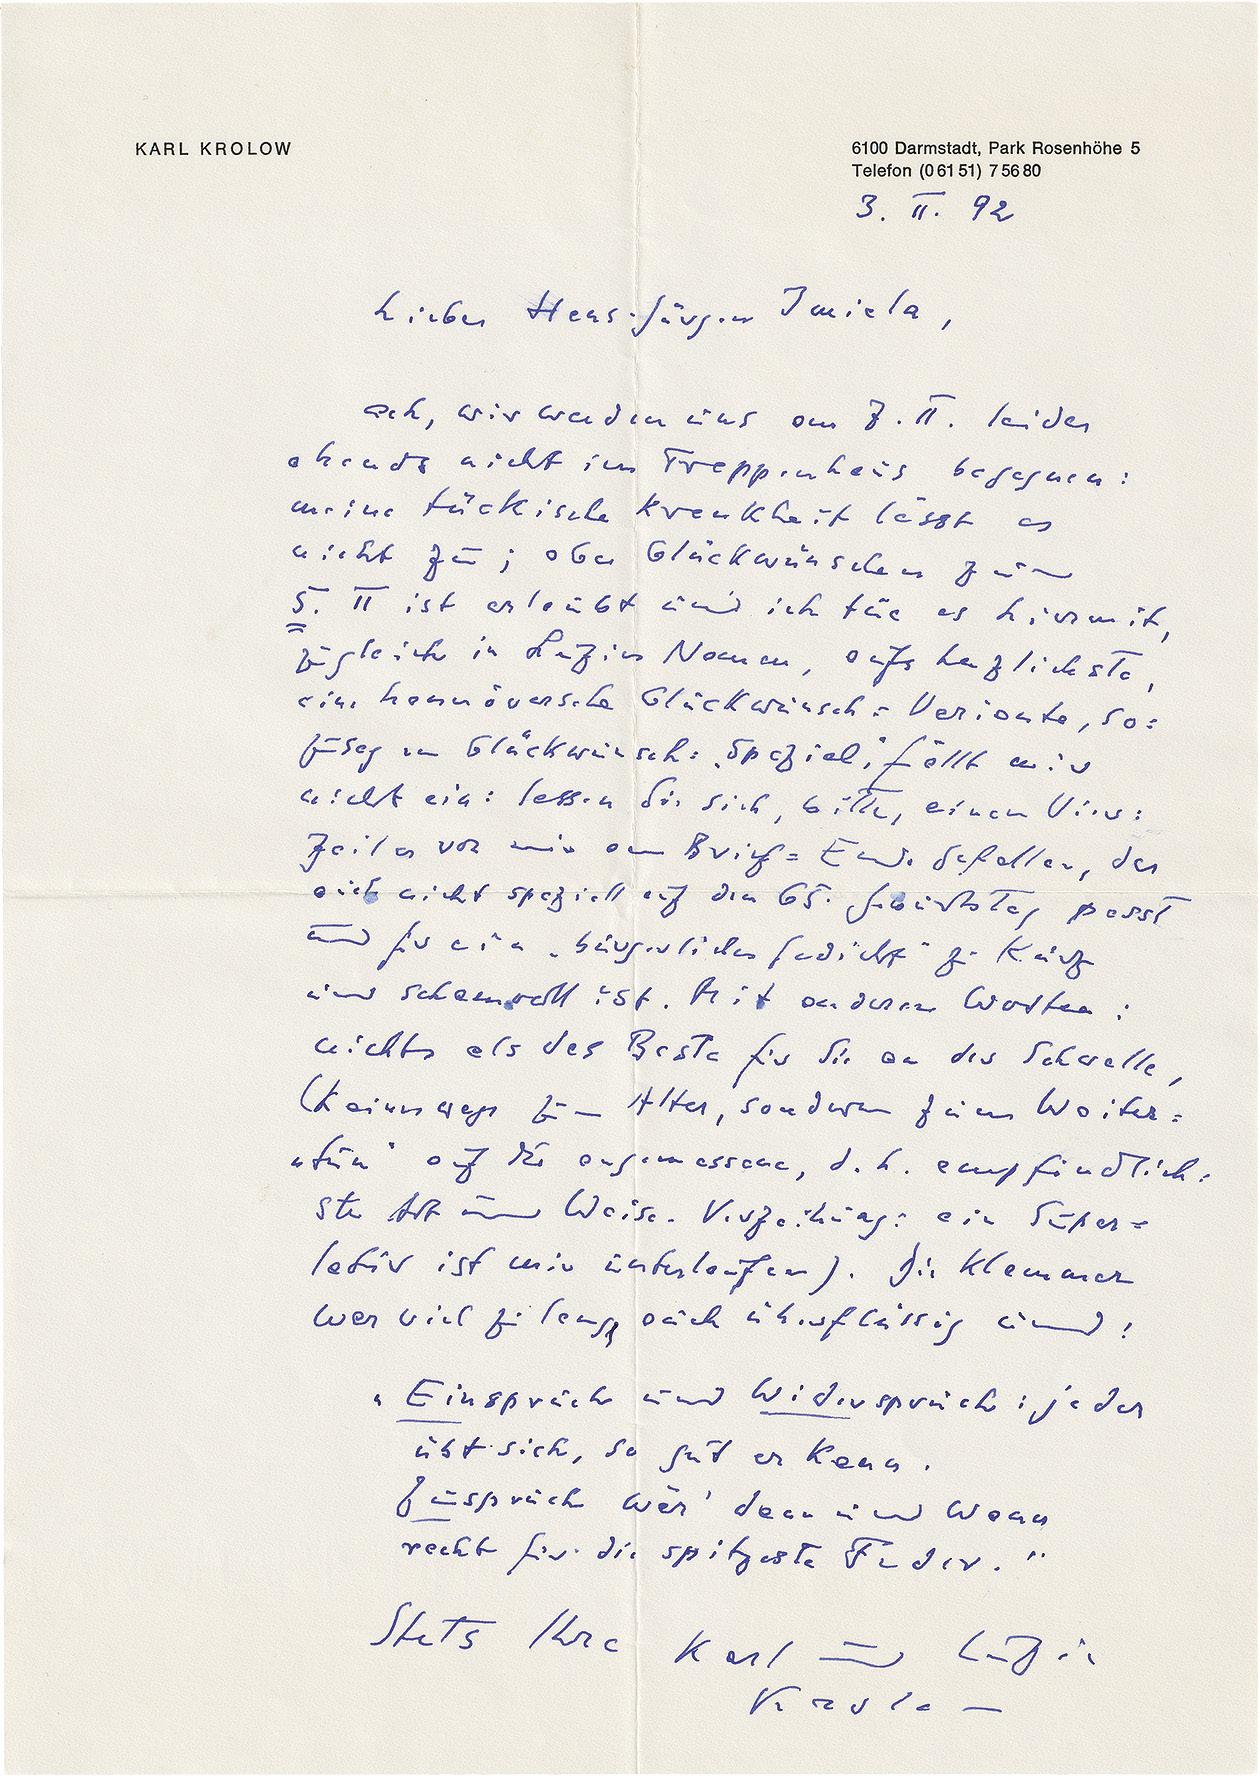 KARL KROLOW
6100 Darmstadt, Park Rosenhöhe 5
Telefon (06151) 75680
3. II. 92
Lieber Hans-Jürgen Imiela,
ach, wir werden uns am 7. II. leider
abends nicht im Treppenhaus begegnen:
meine tückische Krankheit lässt es
nicht zu; aber Glückwünschen zum
5. II ist erlaubt und ich tue es hiermit,
zugleich in Luzies Namen, aufs herzlichste,
eine hannöversche Glückwunsch=Variante, so=
zusagen Glückwunsch= „Spezial", fällt mir
nicht ein: lassen Sie sich, bitte, einen Vier=
zeiler von mir am Brief=Ende gefallen, der
auch nicht speziell auf den 65. Geburtstag passt
und für ein „bürgerliches Gedicht" zu kurz
und schemvoll ist. Mit anderen Worten:
nichts als das Beste für Sie an der Schwelle,
(keineswegs zum Alter, sondern zum Weiter=
„tun" auf die angemessene, d. h. empfindlich=
ste Art und Weise. Verzeihung: ein Super=
lativ ist mir unterlaufen). Die Klammer
war viel zu lang, auch überflüssig und:
„Einspruch und Widerspruch: jeder
übt sich, so gut er kann.
Zuspruch wär' dann und wann
recht für die spitzeste Feder."
Stets Ihre Karl und Luzie
Krolow